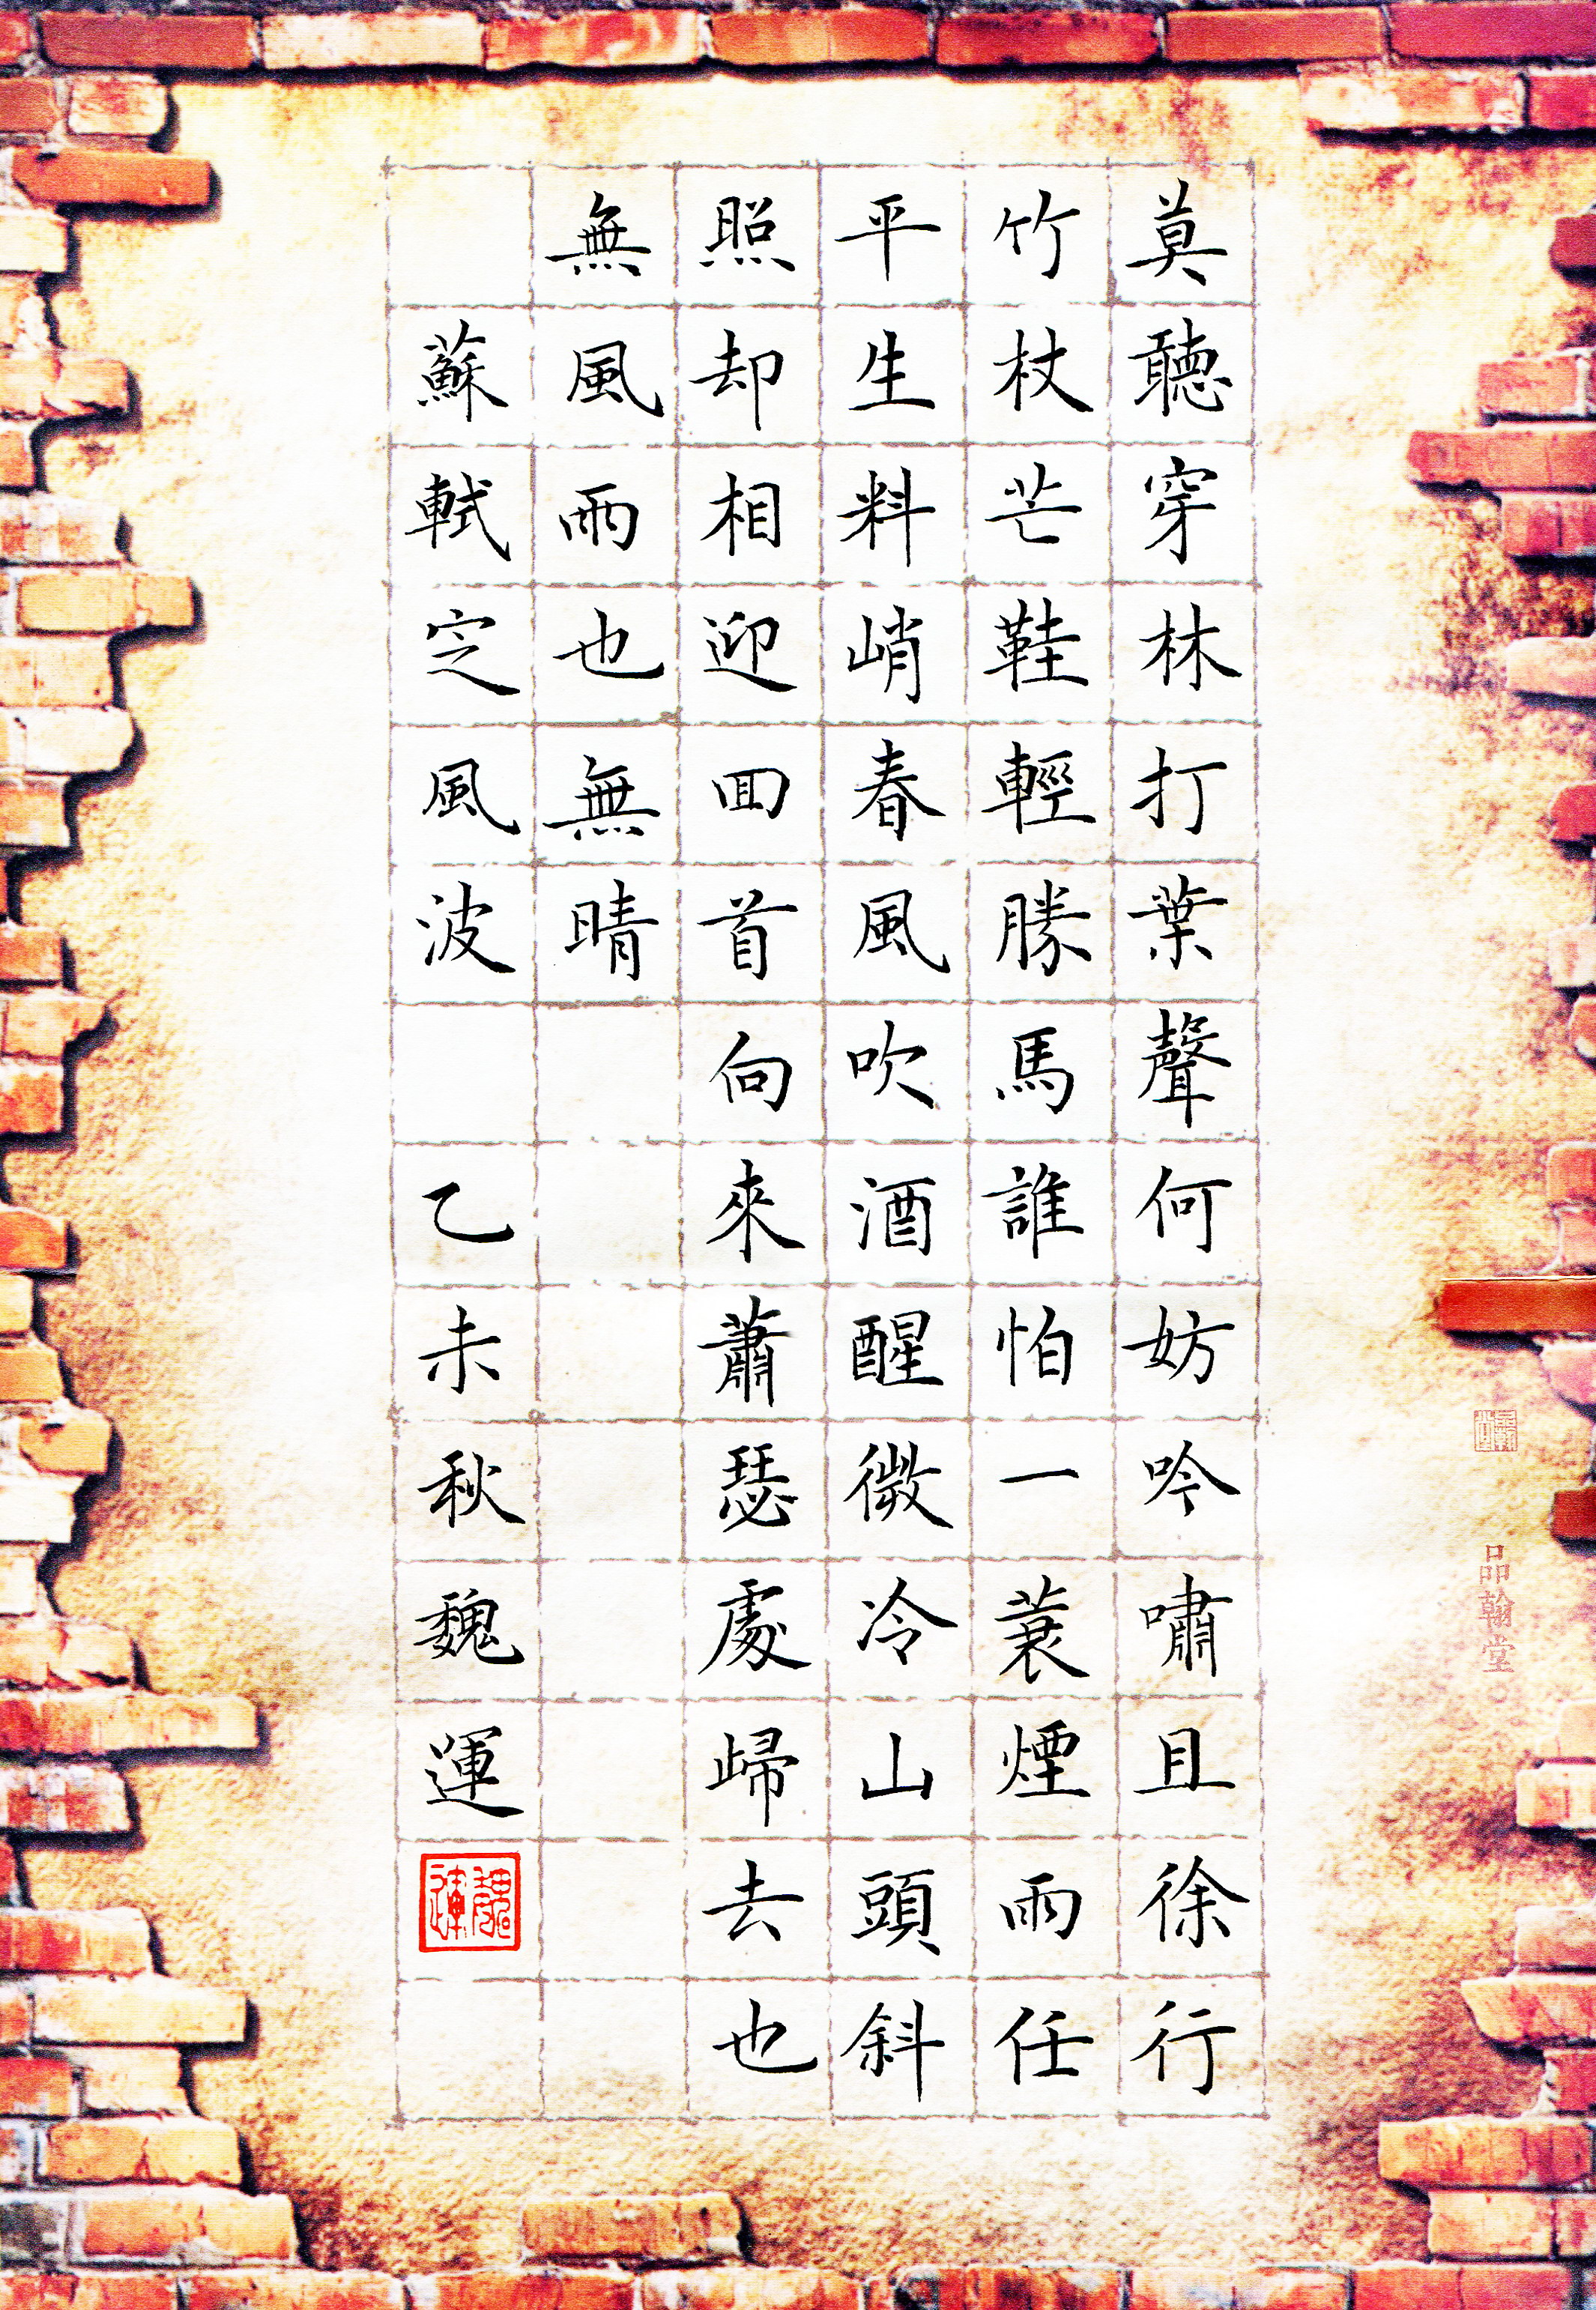 莫聽穿林打葉聲何妨吟嘯且徐行
竹杖芒鞋輕勝馬誰怕一蓑煙雨任
平生料峭春風吹酒醒微冷山頭斜
照却相迎回首向來蕭瑟處歸去也
無風雨也無晴
蘇軾定風波 乙未秋魏運
品翰堂